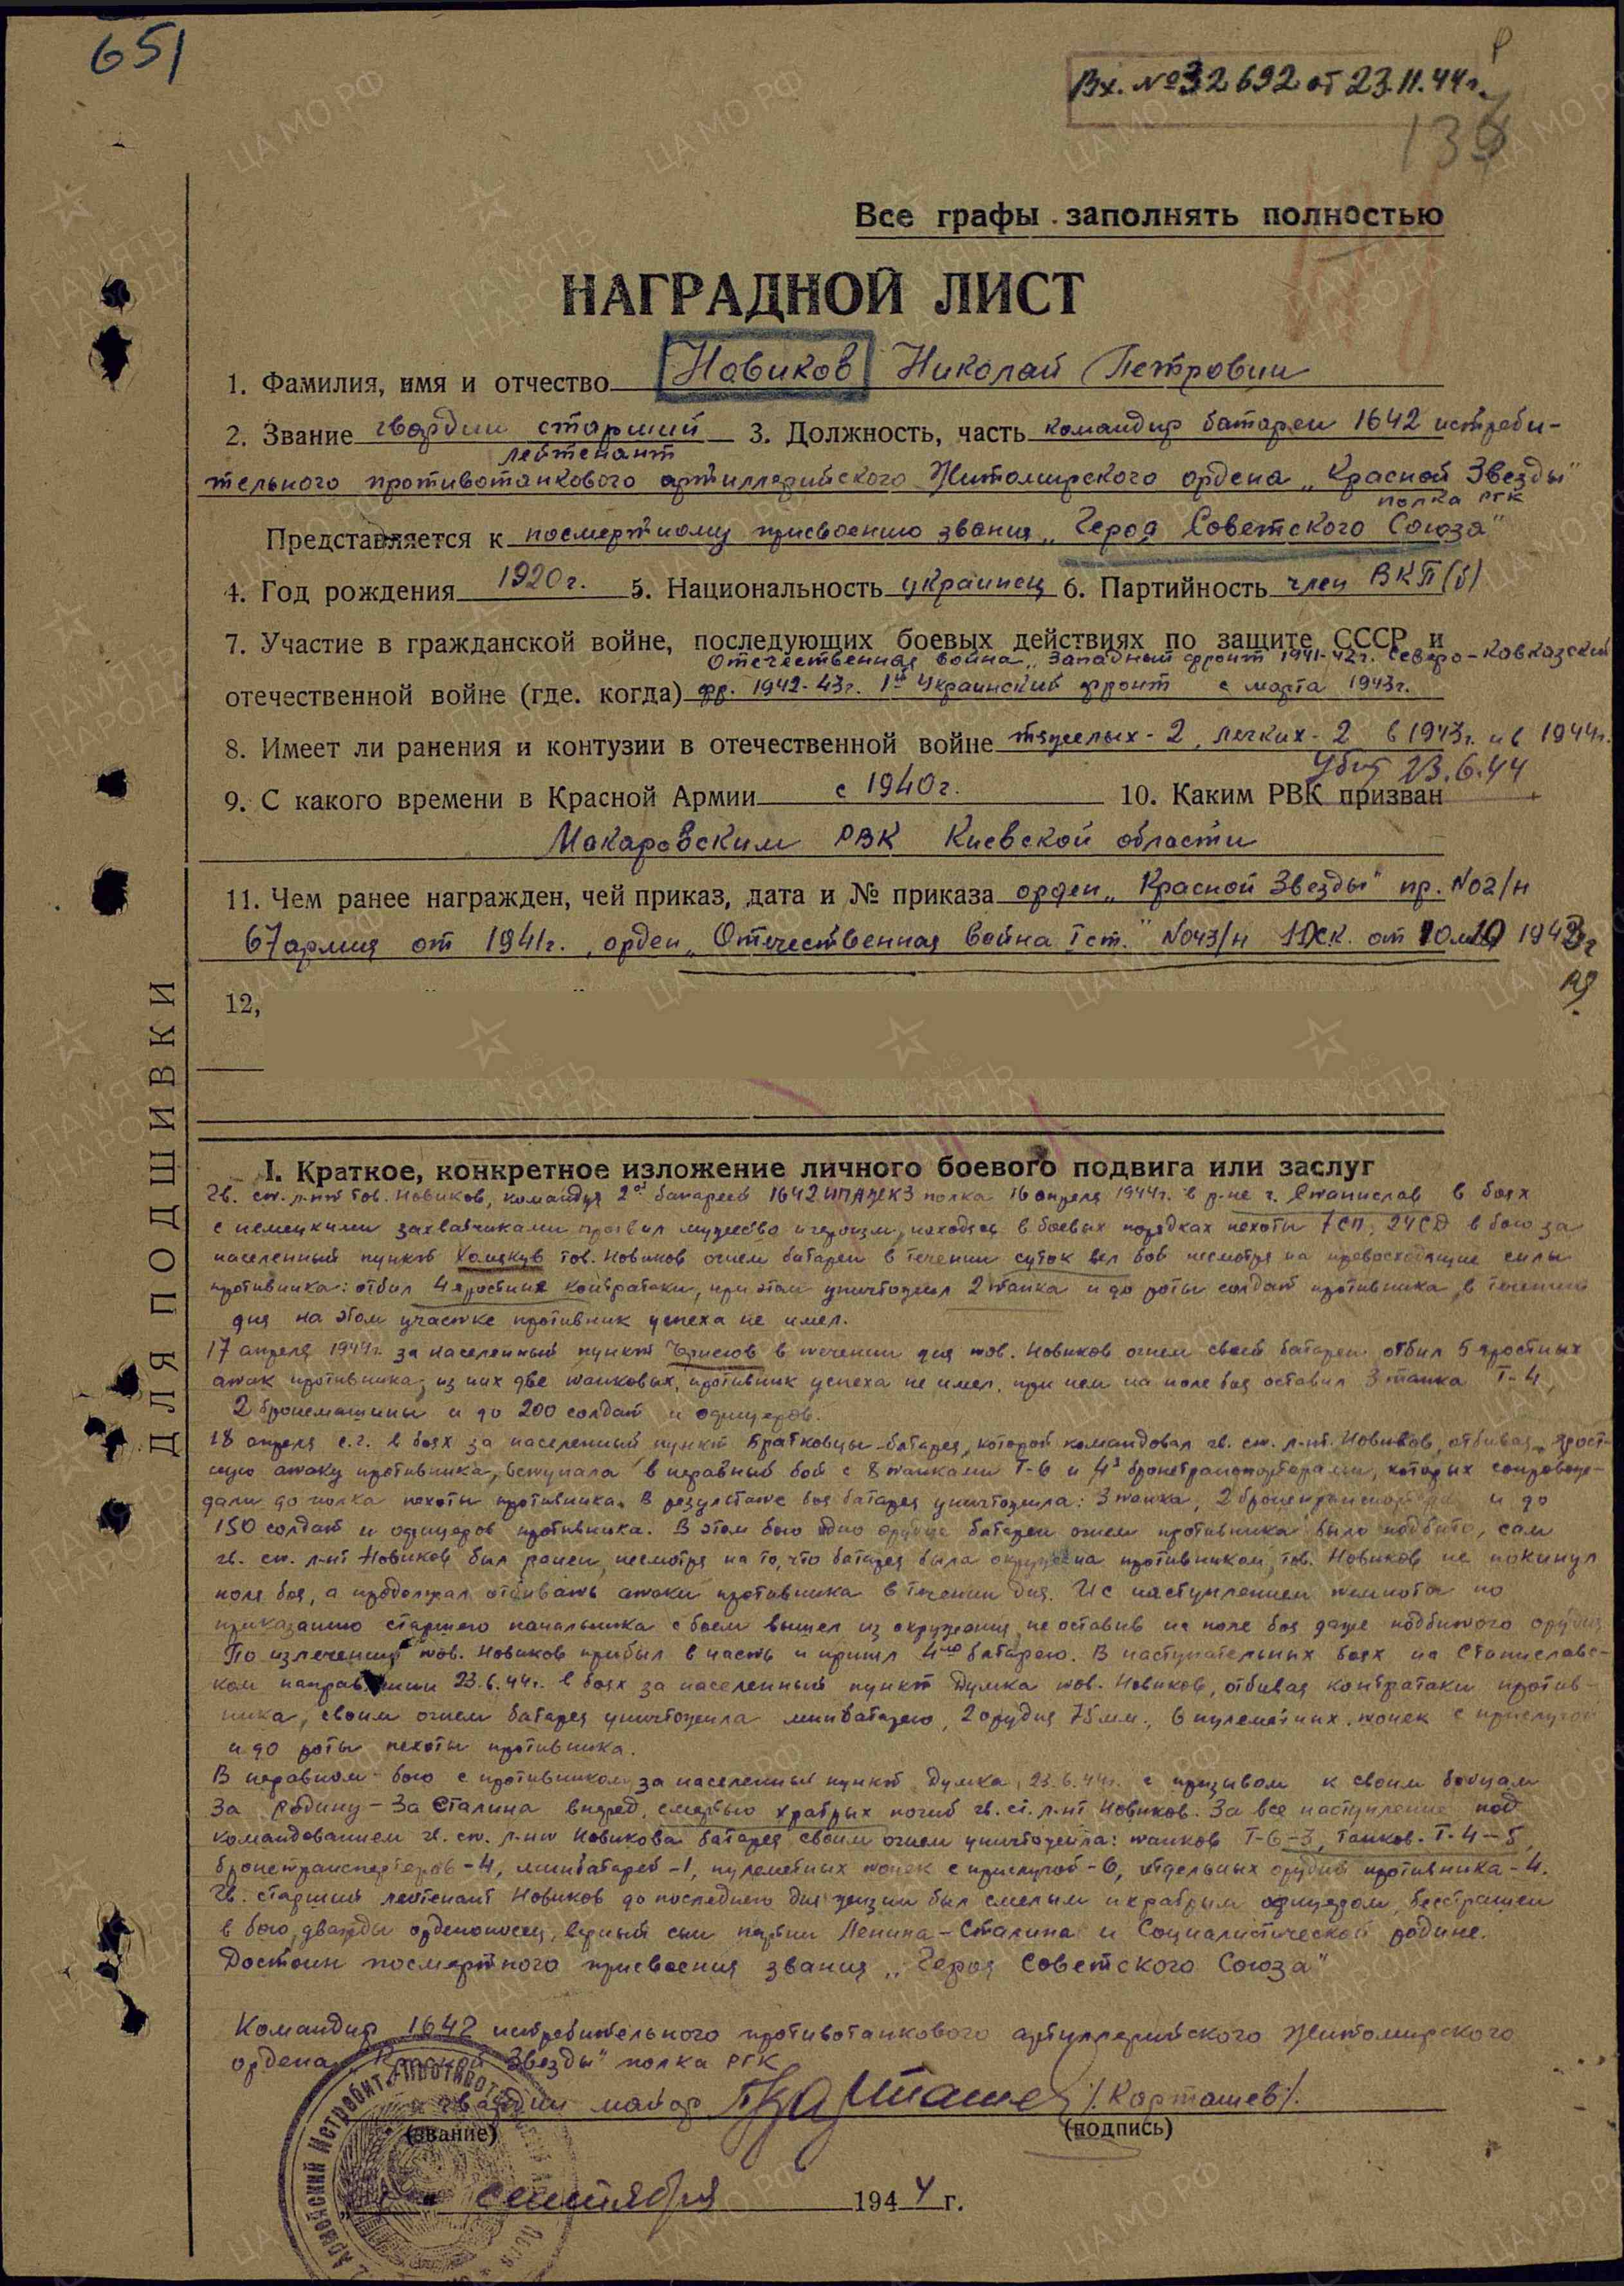 651
Вх. №32692 от 23.11.44г.
139
Все графы заполнять полностью
НАГРАДНОЙ ЛИСТ
1. Фамилия, имя и отчество Новиков Николай Петрович
2. Звание гвардии старший лейтенант 3. Должность, часть командир батареи 1642 истреби-
тельного противотанкового артиллерийского Житомирского ордена „Красной Звезды" полка РГК
Представляется к посмертному присвоению звания „Героя Советского Союза"
4. Год рождения 1920г. 5. Национальность украинец 6. Партийность член ВКП(б)
7. Участие в гражданской войне, последующих боевых действиях по защите СССР и
Отечественная война, Западный фронт 1941-42г. Северо-Кавказский
отечественной войне (где. когда) фр. 1942-43г. 1й Украинский фронт с марта 1943г.
8. Имеет ли ранения и контузии в отечественной войне тяжелых-2, легких-2 в 1943г. и в 1944г.
Убит 23.6.44
9. С какого времени в Красной Армии с 1940г. 10. Каким РВК призван
Макаровским РВК Киевской области
11. Чем ранее награжден, чей приказ, дата и № приказа орден „Красной Звезды" пр. №02/н
67 армия от 1941г., орден „Отечественная война I ст." №043/н от 1943г
12,
ДЛЯ ПОДШИВКИ
I. Краткое, конкретное изложение личного боевого подвига или заслуг
Гв. ст. л-нт тов. Новиков, командуя 2ой батареей 1642 ИПАЖКЗ полка 16 апреля 1944г. в р-не г. Станислав в боях
с немецкими захватчиками проявил мужество и героизм, находясь в боевых порядках пехоты 7СП, 24СД в бою за
населенный пункт Хомякув тов. Новиков огнем батареи в течении суток вел бой несмотря на превосходящие силы
противника: отбил 4 яростных контратаки, при этом уничтожил 2 танка и до роты солдат противника, в течении
дня на этом участке противник успеха не имел.
17 апреля 1944г. за населенный пункт в течении дня тов. Новиков огнем своей батареи отбил 5 яростных
атак противника, из них две танковых, противник успеха не имел, при чем на поле боя оставил 3 танка Т-4,
2 бронемашины и до 200 солдат и офицеров.
18 апреля с.г. в боях за населенный пункт Братковцы батарея, которой командовал гв. ст. л-нт. Новиков, отбивая ярост-
ную атаку противника, вступала в неравный бой с 8 танками Т-6 и 4я бронетранспортерами, которых сопровож-
дали до полка пехоты противника. В результате боя батарея уничтожила: 3 танка, 2 бронетранспортера и до
150 солдат и офицеров противника. В этом бою одно орудие батареи огнем противника было подбито, сам
гв. ст. л-нт Новиков был ранен, несмотря на то, что батарея была окружена противником, тов. Новиков не покинул
поле боя, а продолжал отбивать атаки противника в течении дня. И с наступлением темноты по
приказанию старшего начальника с боем вышел из окружения, не оставив на поле боя даже подбитого орудия
По излечении тов. Новиков прибыл в часть и принял 4ую батарею. В наступательных боях на Станиславс-
ком направлении 23.6.44г. в боях за населенный пункт Думка тов. Новиков, отбивая контратаки против-
ника, своим огнем батарея уничтожила минбатарею, 2 орудия 75мм., 6 пулеметных точек с прислугой
и до роты пехоты противника.
В неравном бою с противником за населенный пункт Думка 23.6.44г. с призывом к своим бойцам
За Родину - За Сталина вперед, смертью храбрых погиб гв. ст. л-нт Новиков. За все наступление под
командованием гв. ст. л-нт Новикова батарея своим огнем уничтожила: танков Т-6-3, танков Т-4-5,
бронетранспортеров-4, минбатарей-1, пулеметных точек с прислугой-6, отдельных орудий противника-4.
Гв. старший лейтенант Новиков до последнего дня жизни был смелым и храбрым офицером, бесстрашен
в бою, дважды орденоносец, верный сын партии Ленина-Сталина и Социалистической родине.
Достоин посмертного присвоения звания „Героя Советского Союза"
Командир 1642 истребительного противотанкового артиллерийского Житомирского
ордена „Красной Звезды" полка РГК
гвардии майор /Карташев/.
(звание) (подпись)
сентября 1944 г.